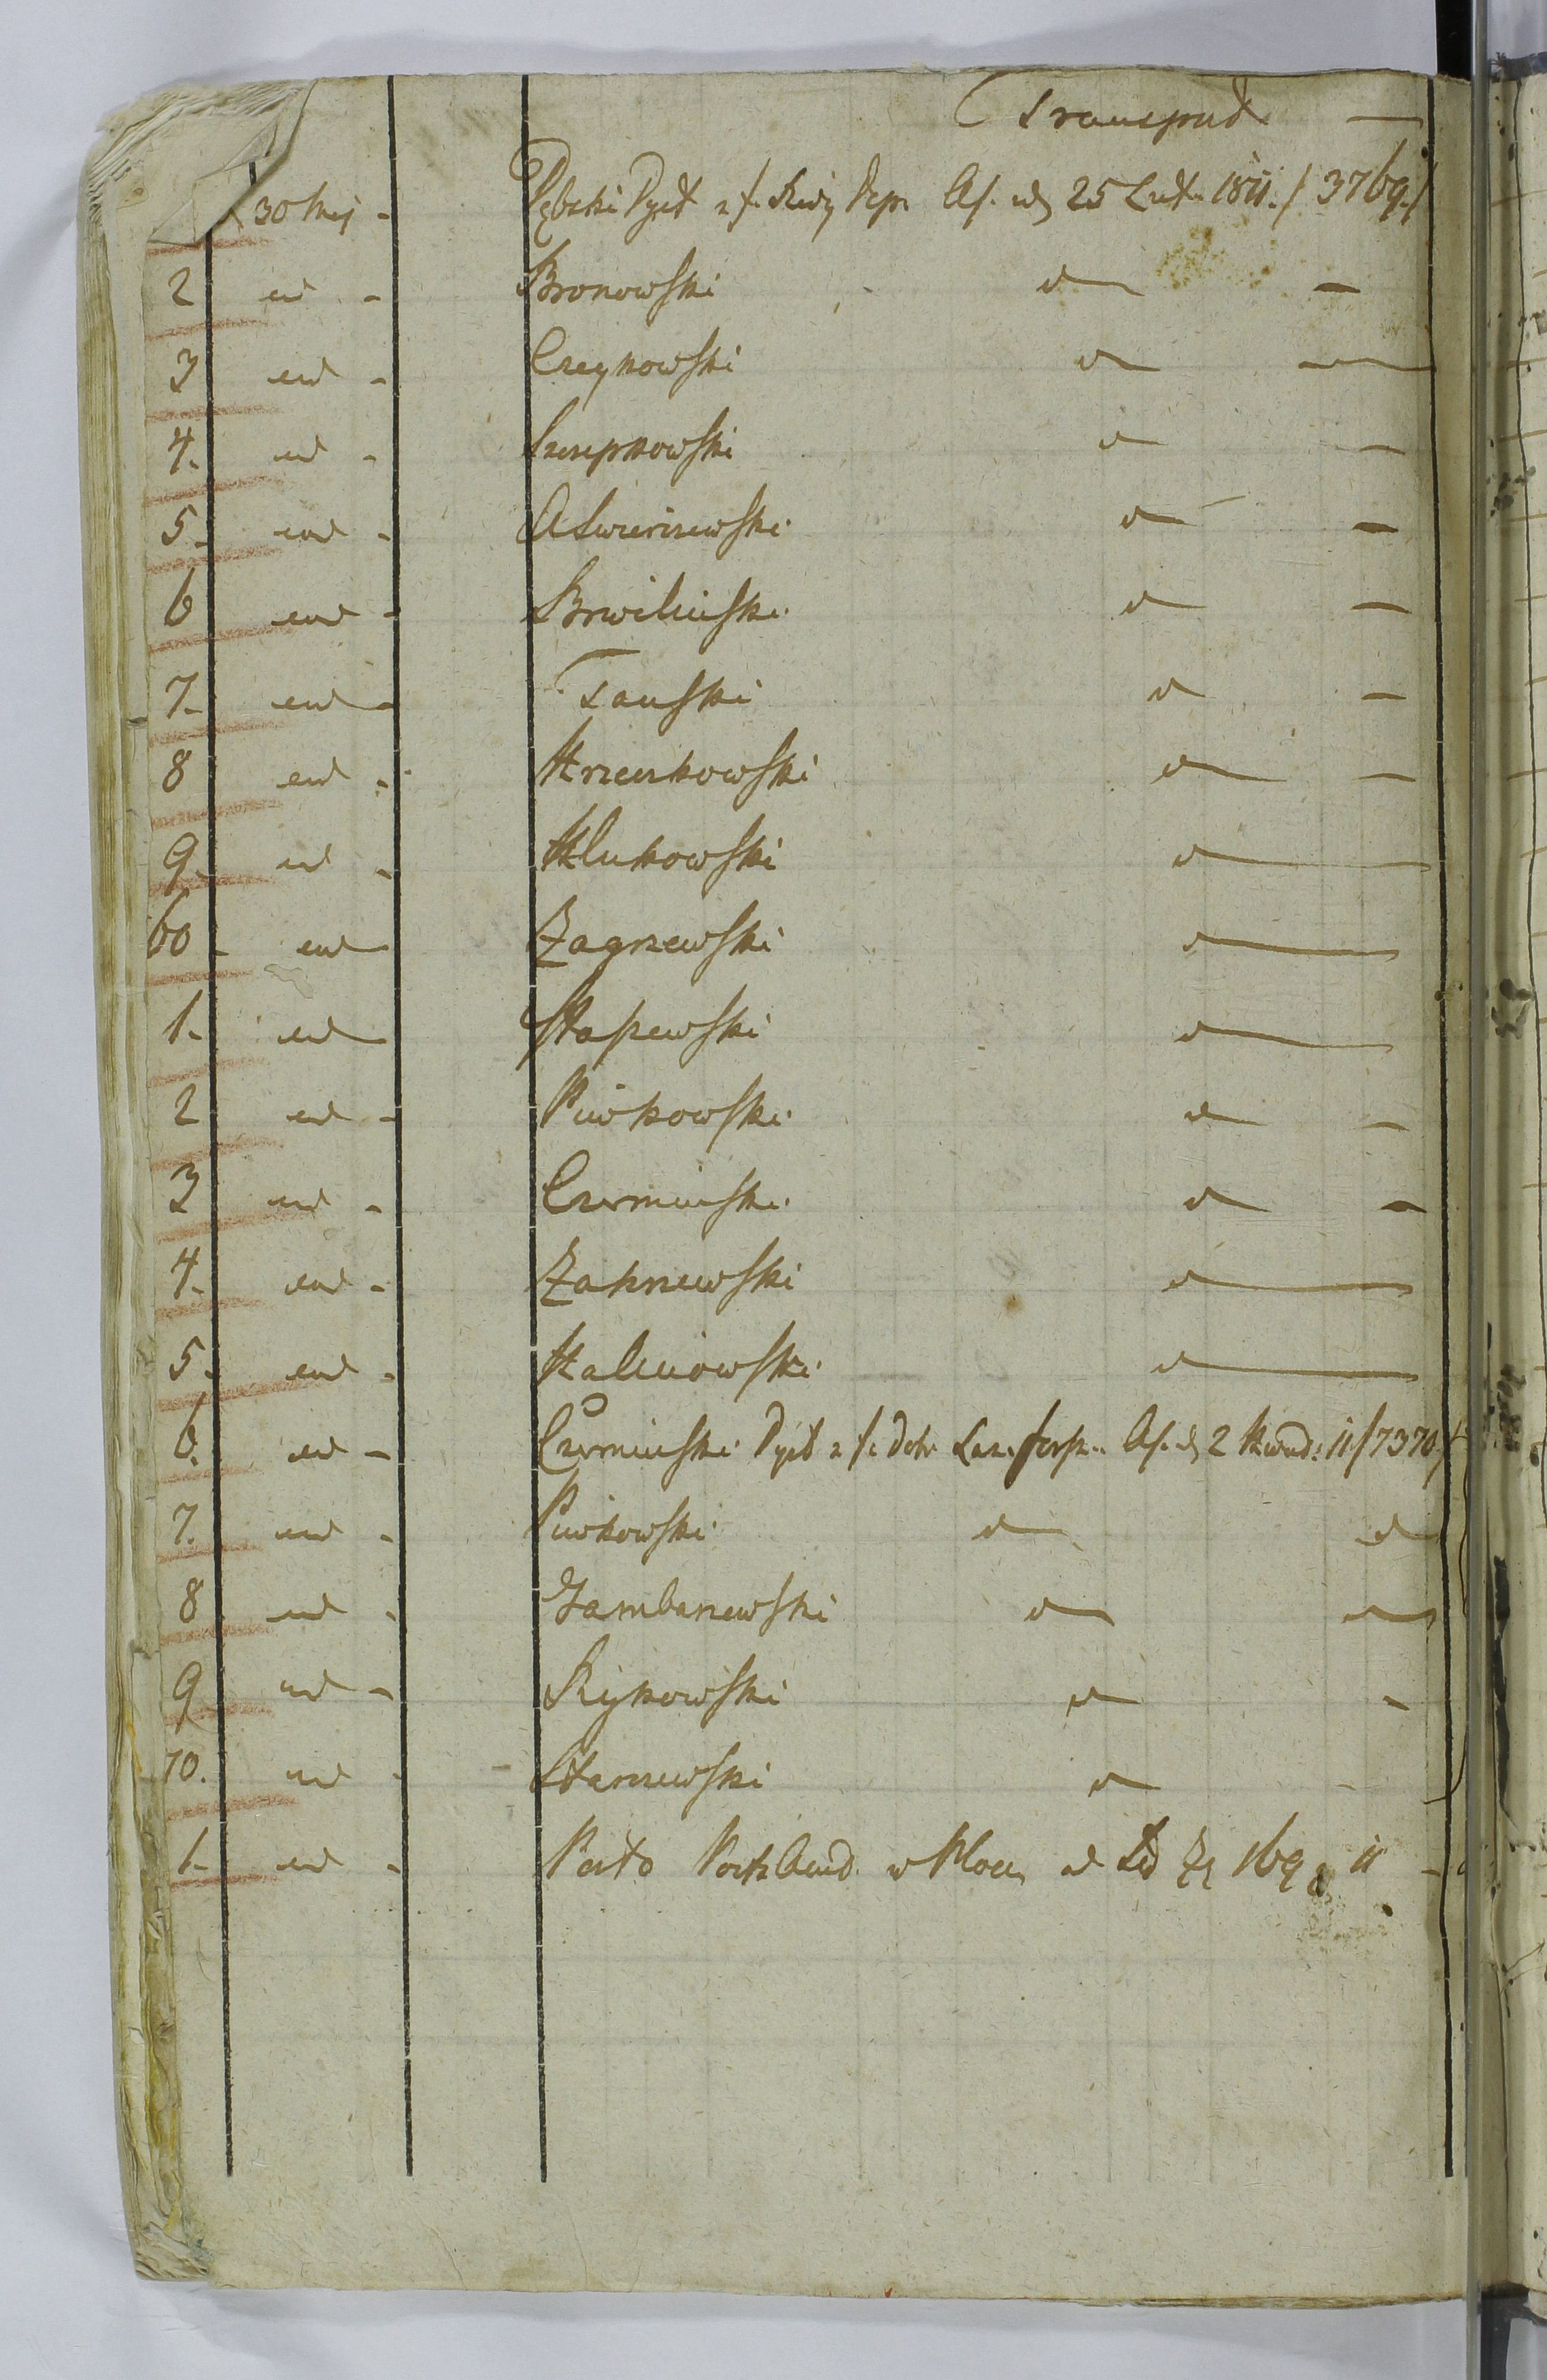 Transport —
30 Maj - Dębski Dyet z f. Rewiz Depr As. od 25 Lut. 1811. / 3769./
2 eod - Bronowski d —
3 eod - Czeykowski d —
4. eod - Szczepkowski d —
5. eod - A Swierczewski d —
6 eod - Brwilinski d —
7. eod - Tanski d —
8 eod - Krzeczkowski d —
9. eod - Klukowski d —
60 - eod Zagrzewski d —
1. eod Staszewski d —
2 eod - Piwkowski d —
3 eod - Czerminski d —
4. eod - Zakrzewski d —
5. eod - Kalinowski d —
6. eod - Czerminski Dyet z f. As. d 2 Kwied: 11 / 7370 /
7. eod - Piwkowski d d
8 eod - Zambrzewski d d
9 eod - Rykowski d -
70. eod - Starzewski d -
1. eod - Porto w 169 11 -